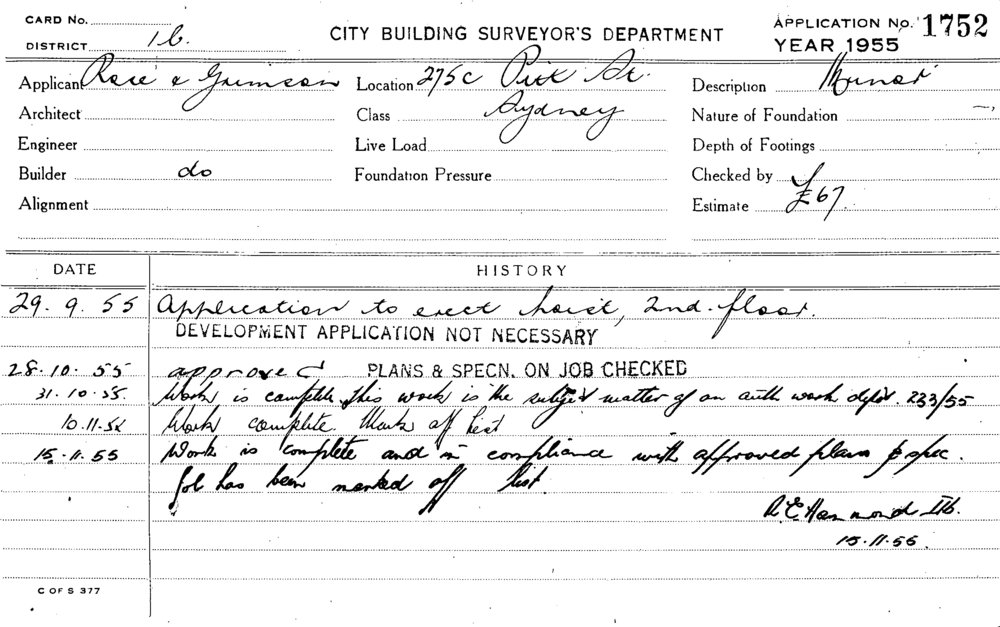 CARD No.
DISTRICT 1b.
CITY BUILDING SURVEYOR'S DEPARTMENT
APPLICATION No. 1752
YEAR 1955
Applicant Rose & Grimson Location 275c Pitt St. Description Minor
Architect Class Sydney Nature of Foundation
Engineer Live Load Depth of Footings
Builder do Foundation Pressure Checked by
Alignment Estimate £67.
DATE HISTORY
29. 9. 55 Application to erect hoist, 2nd. floor.
DEVELOPMENT APPLICATION NOT NECESSARY
28.10.55 approved PLANS & SPECN. ON JOB CHECKED
31.10.55. Work is complete. This work is the subject matter of an auth work 233/55
10.11.55 Work complete. Mark off list
15.11.55 Work is complete and in compliance with approved plans & spec.
Job has been marked off list.
Hammond IIb.
15.11.55.
C OF S 377